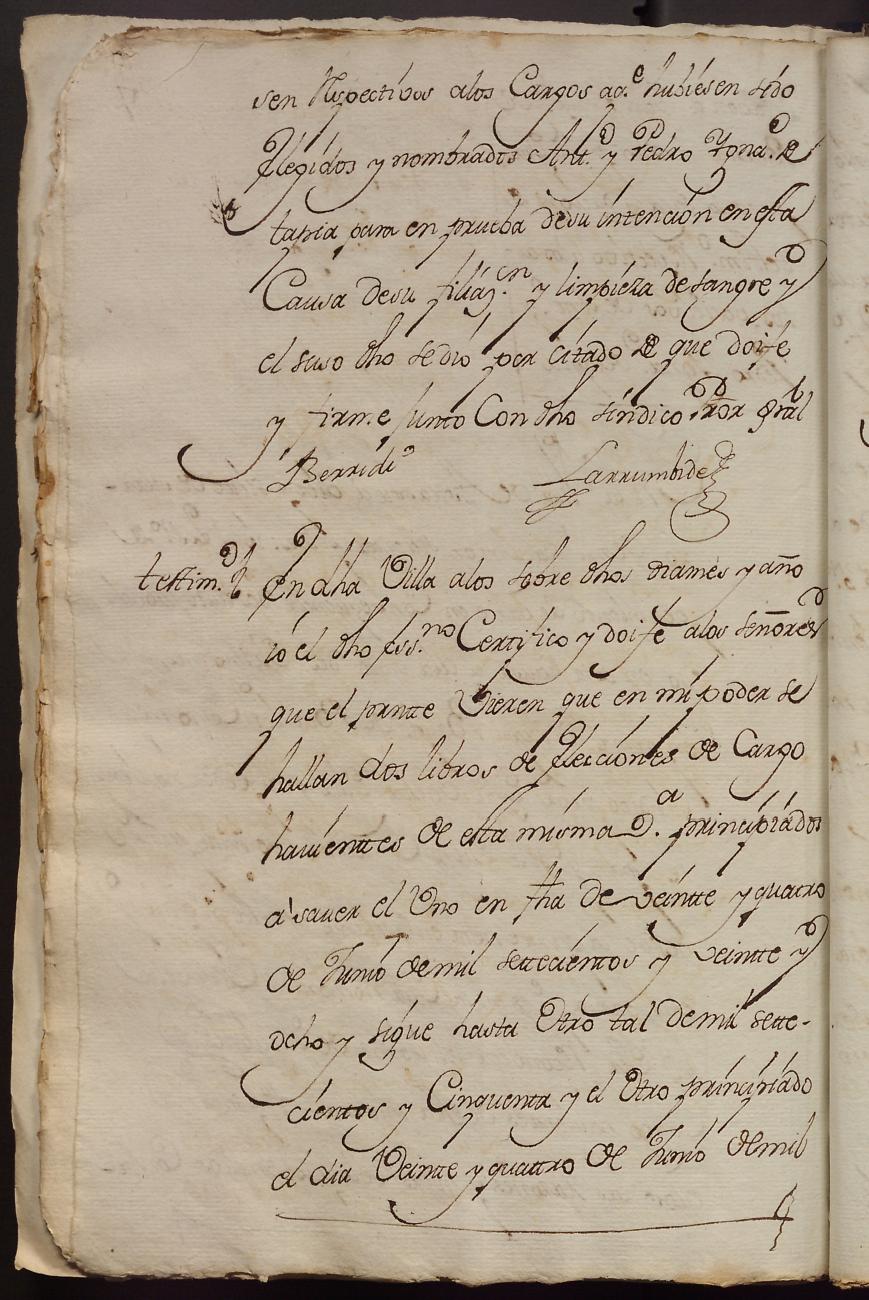 sen Respectivos alos Cargos aq.e hubiesen sido
Elegidos y nombrados Ant.o y Pedro Ygna.o de
tapia para en prueba desu intencion en esta
Causa desu filiaz.on y limpieza desangre y
el suso dho sedio por citado de que doi fe
y firme junto Con dho sindico Pror gral
Berridi
Larrumbide
testim.o En dha Villa alos sobre dhos dia mes y año
io el dho ess.no Certifico y doi fe alos señores
que el prnte Vieren que en mi poder se
hallan dos libros de Elecciones de Cargo
haui entes de esta misma V.a principiados
a saver el Uno en fha de veinte y quatro
de Junio demil settecientos y veintte y
ocho y sigue hasta Otro tal demil sette-
cientos y Cinquenta y el Otro principiado
el dia Veinte y quattro de Junio demil